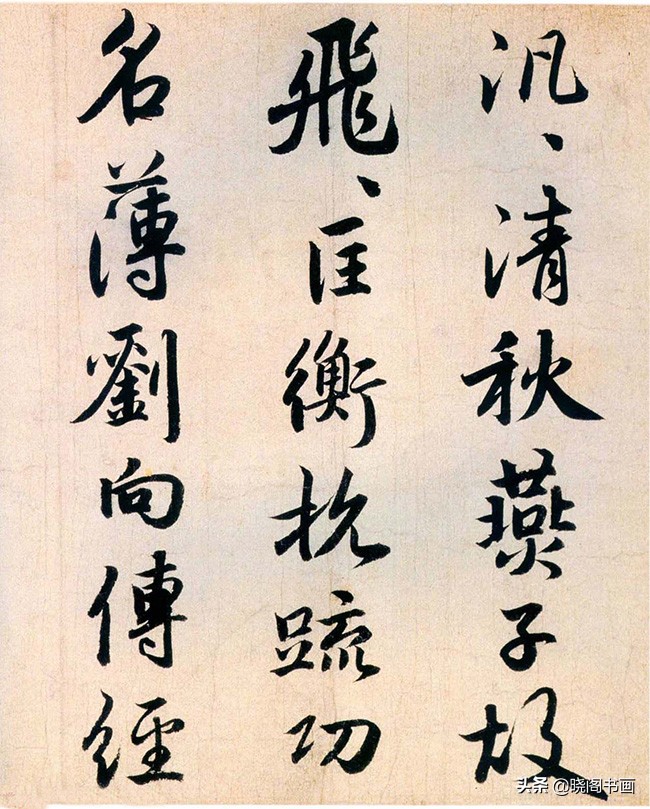 汎〻清秋燕子故
飛〻匡衡抗疏功
名薄劉向傳經
头条 @晓阁书画